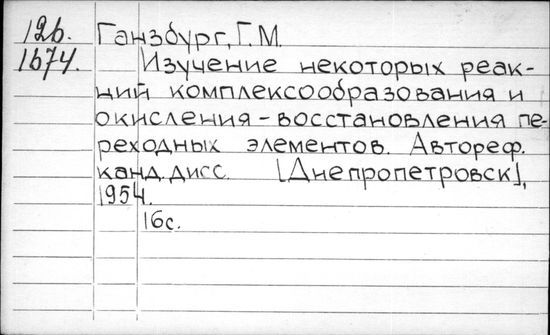 12б. Ганзбург, Г.М.
1674. Изучение некоторых реак-
ций комплексообразования и
окисления-восстановления пе-
реходных элементов. Автореф.
канд. дисс. [Днепропетровск],
1954.
16с.